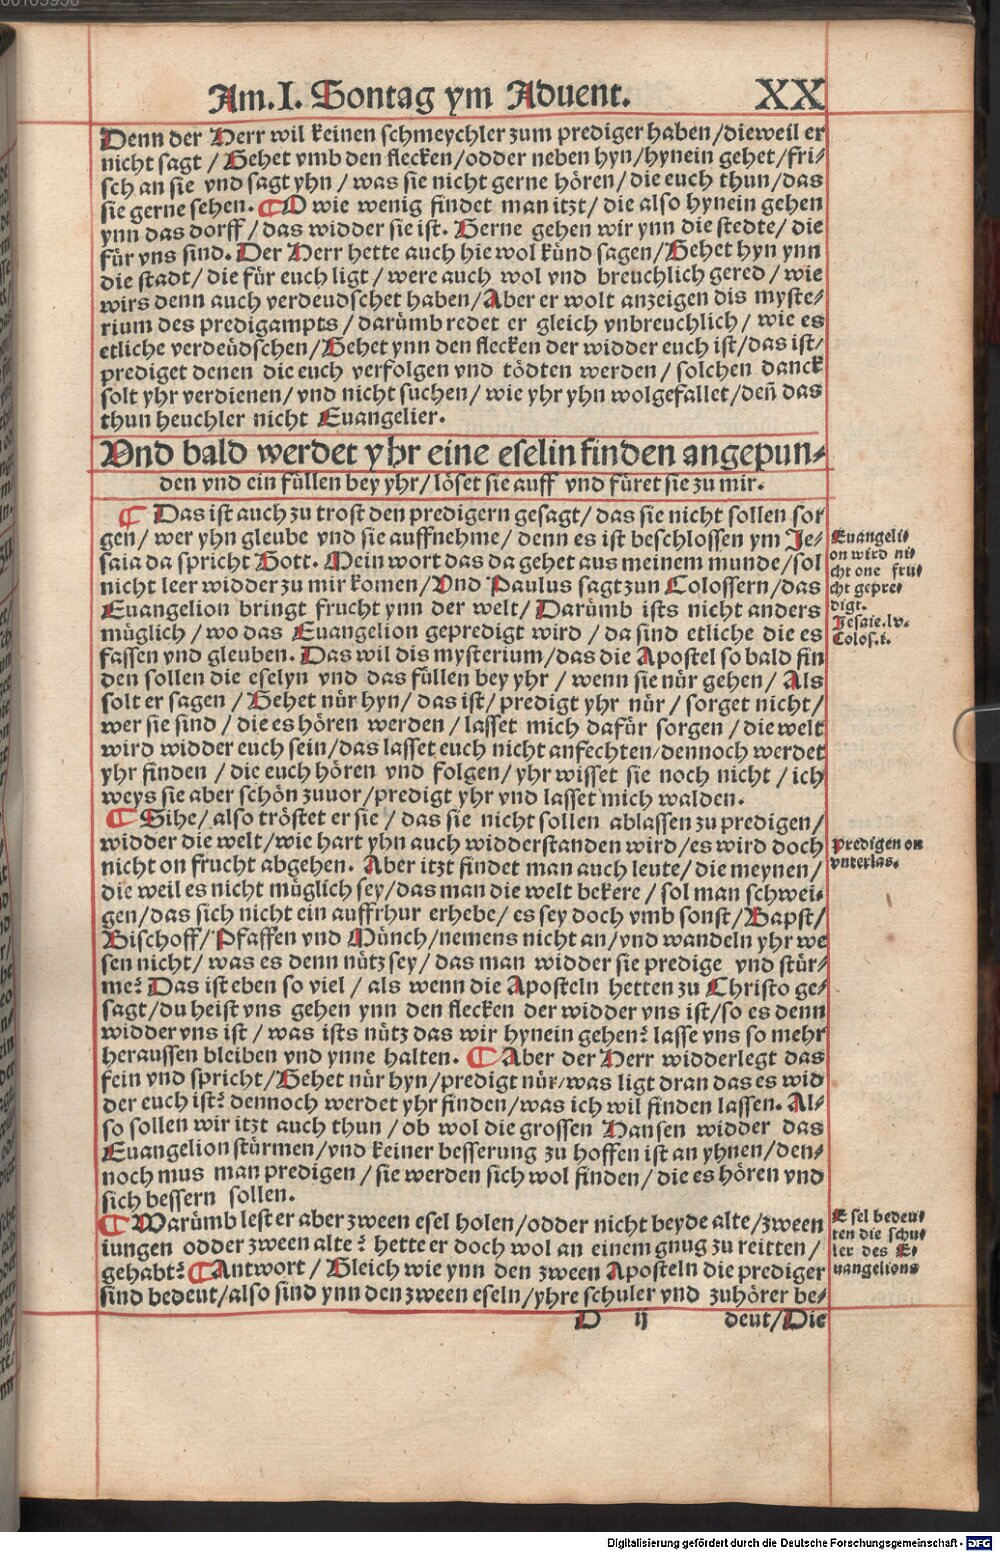 Am.I. Sontag ym Aduent. XX
Denn der Herr wil keinen schmeychler zum prediger haben/dieweil er
nicht sagt / Gehet vmb den flecken/odder neben hyn/hynein gehet/fri/
sch an sie vnd sagt yhn / was sie nicht gerne hören/ die euch thun/das
sie gerne sehen. ¶ O wie wenig findet man itzt/ die also hynein gehen
ynn das dorff/das widder sie ist. Gerne gehen wir ynn die stedte/ die
für vns sind. Der Herr hette auch hie wol künd sagen/Gehet hyn ynn
die stadt/ die für euch ligt/ were auch wol vnd breuchlich gered/ wie
wirs denn auch verdeudschet haben/Aber er wolt anzeigen dis myste/
rium des predigampts/darümb redet er gleich vnbreuchlich/ wie es
etliche verdeüdschen/Gehet ynn den flecken der widder euch ist/das ist/
prediget denen die euch verfolgen vnd tödten werden/ solchen danck
solt yhr verdienen/ vnd nicht suchen/ wie yhr yhn wolgefallet/deñ das
thun heuchler nicht Euangelier.
Vnd bald werdet yhr eine eselin finden angepun/
den vnd ein füllen bey yhr/ löset sie auff vnd füret sie zu mir.
¶ Das ist auch zu trost den predigern gesagt/ das sie nicht sollen sor
gen/ wer yhn gleube vnd sie auffnehme/ denn es ist beschlossen ym Je/
saia da spricht Gott. Mein wort das da gehet aus meinem munde/sol
nicht leer widder zu mir komen/ Vnd Paulus sagt zun Colossern/das
Euangelion bringt frucht ynn der welt/ Darümb ists nicht anders
müglich/ wo das Euangelion gepredigt wird / da sind etliche die es
fassen vnd gleuben. Das wil dis mysterium/das die Apostel so bald fin
den sollen die eselyn vnd das füllen bey yhr / wenn sie nür gehen/ Als
solt er sagen / Gehet nür hyn/ das ist/ predigt yhr nür/ sorget nicht/
wer sie sind / die es hören werden/ lasset mich dafür sorgen / die welt
wird widder euch sein/das lasset euch nicht anfechten/dennoch werdet
yhr finden / die euch hören vnd folgen/yhr wisset sie noch nicht / ich
weys sie aber schön zuuor/predigt yhr vnd lasset mich walden.
¶ Sihe/ also tröstet er sie / das sie nicht sollen ablassen zu predigen/
widder die welt/ wie hart yhn auch widderstanden wird/es wird doch
nicht on frucht abgehen. Aber itzt findet man auch leute/ die meynen/
die weil es nicht müglich sey/das man die welt bekere/ sol man schwei/
gen/das sich nicht ein auffrhur erhebe/ es sey doch vmb sonst/Bapst/
Bischoff/ Pfaffen vnd Münch/nemens nicht an/vnd wandeln yhr we
sen nicht/ was es denn nütz sey/ das man widder sie predige vnd stür/
me? Das ist eben so viel/ als wenn die Aposteln hetten zu Christo ge/
sagt/du heist vns gehen ynn den flecken der widder vns ist/so es denn
widder vns ist / was ists nütz das wir hynein gehen? lasse vns so mehr
heraussen bleiben vnd ynne halten. ¶ Aber der Herr widderlegt das
fein vnd spricht/Gehet nür hyn/predigt nür/was ligt dran das es wid
der euch ist? dennoch werdet yhr finden/was ich wil finden lassen. Al/
so sollen wir itzt auch thun/ ob wol die grossen Hansen widder das
Euangelion stürmen/vnd keiner besserung zu hoffen ist an yhnen/den/
noch mus man predigen/ sie werden sich wol finden/ die es hören vnd
sich bessern sollen.
¶ Warümb lest er aber zween esel holen/odder nicht beyde alte/zween
iungen odder zween alte? hette er doch wol an einem gnug zu reitten/
gehabt? ¶ Antwort/ Gleich wie ynn den zween Aposteln die prediger
sind bedeut/also sind ynn den zween eseln/yhre schuler vnd zuhörer be/
D ij deut/Die
Euangeli/
on wird ni/
cht one fru/
cht gepre/
digt.
Jesaie.lv.
Colos.i.
Predigen on
vnterlas.
Esel bedeu/
ten die schu/
ler des E/
uangelions
Digitalisierung gefördert durch die Deutsche Forschungsgemeinschaft - DFG